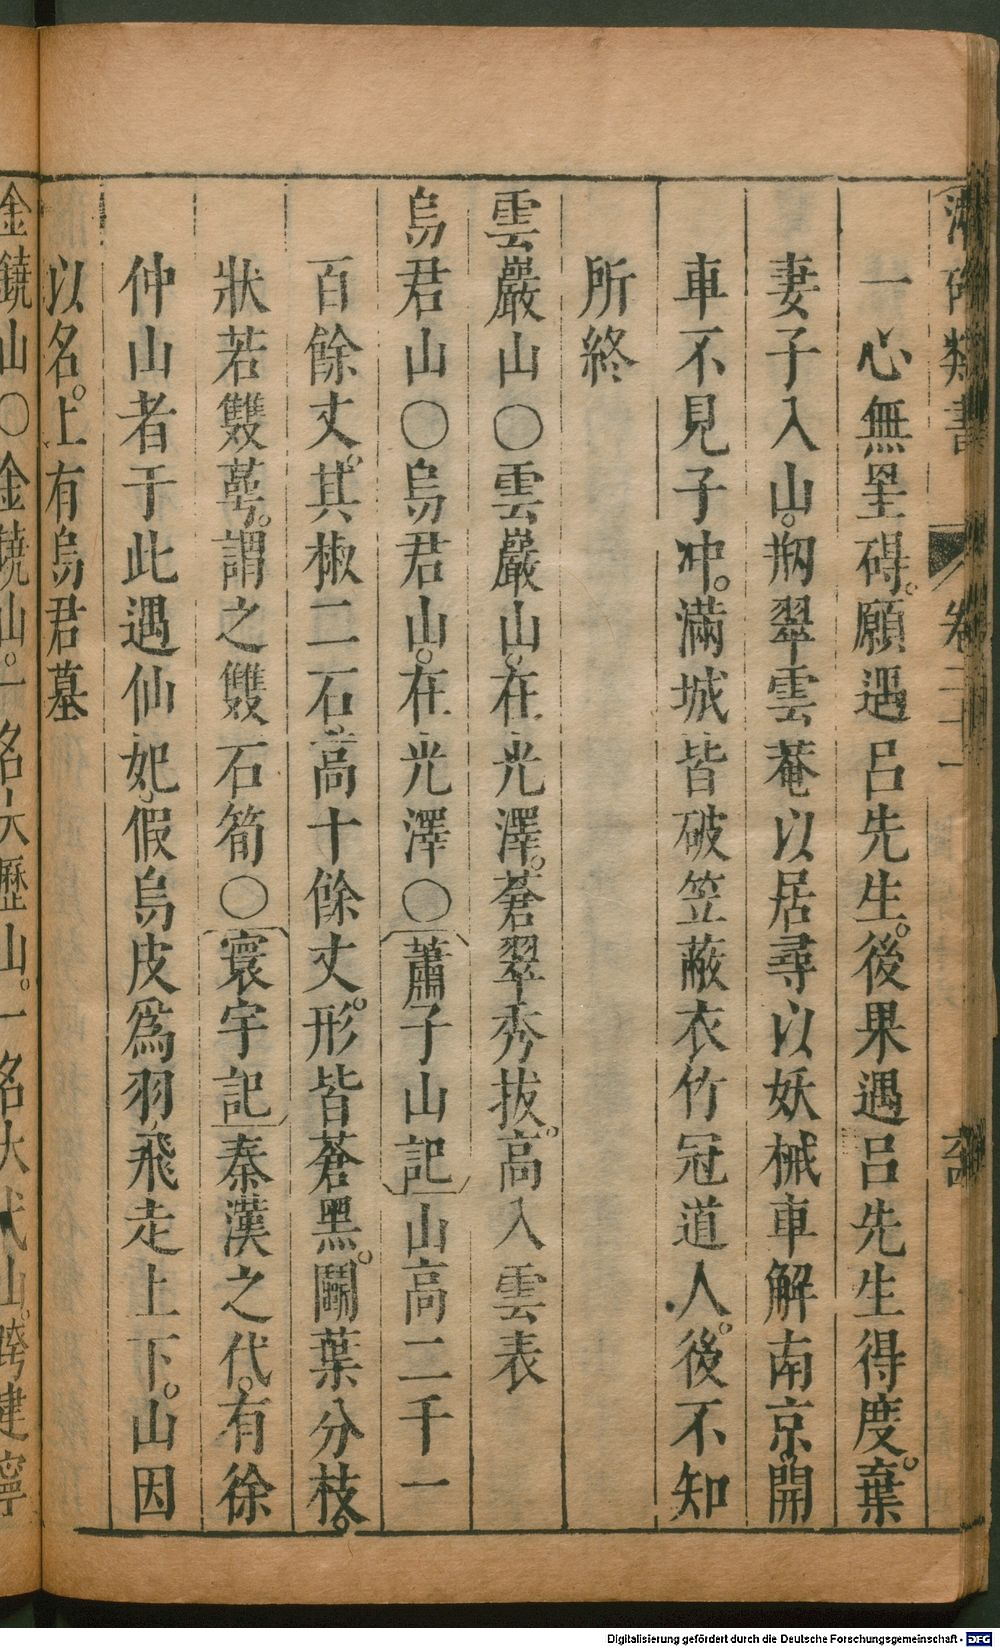 卷二十一
一心無罣碍。願遇呂先生。後果遇呂先生得度。棄
妻子入山。剏翠雲菴以居尋以妖械車解南京開
車不見子冲。滿城皆破笠蔽衣竹冠道人。後不知
所終
雲巖山○雲巖山。在光澤。蒼翠秀拔。高入雲表
烏君山○烏君山。在光澤○蕭子山記山高二千一
百餘丈。其椒二石高十餘丈。形皆蒼黑。鬬葉分枝。
狀若雙蕚。謂之雙石筍○寰宇記秦漢之代。有徐
仲山者于此遇仙妃。假烏皮爲羽。飛走上下。山因
以名。上有烏君墓
金鐃山○金鐃山。一名大歷山。一名大弋山。跨建寧
Digitalisierung gefördert durch die Deutsche Forschungsgemeinschaft - DFG